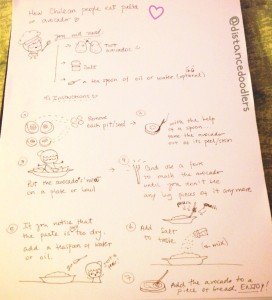 How Chilean people eat palta
or avocado :)
@distancedoodlers
you will need:
Two
avocados
Salt
a tea spoon of oil or water (optional)
Instructions
1
Remove
each pit/seed
2
with the help
of a spoon
remove the avocado
out of its peel/skin
3
Put the avocado's "meat"
on a plate or bowl
4
And use a fork
to mash the avocado
until you don't see
any big pieces of it anymore
5
If you notice that
the paste is too dry,
add a teaspon of water
or oil.
6
Add salt
to taste
(or milk)
7
Add the avocado to a
piece of bread, ENJOY!